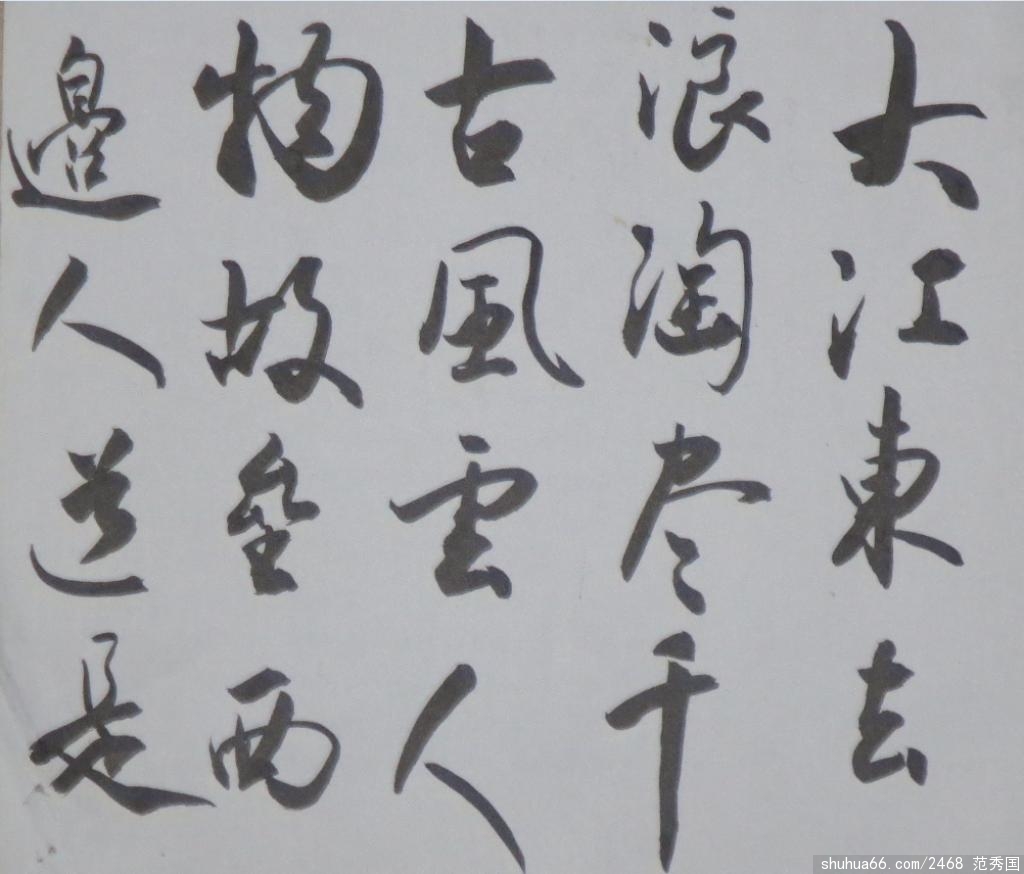 大江東去
浪淘尽千
古風雲人
物故垒西
邉人道是
shuhua66.com/2468 范秀国